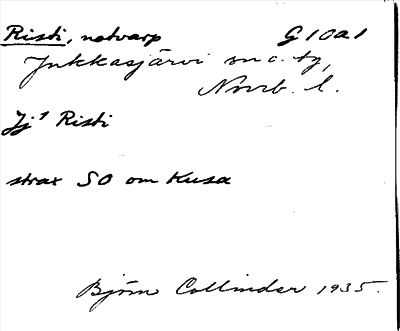 Risti, notvarp G10a1
Jukkasjärvi sn o. tg,
Norrb. l.
Jj¹ Risti
strax SO om Kusa
Björn Collinder 1935.